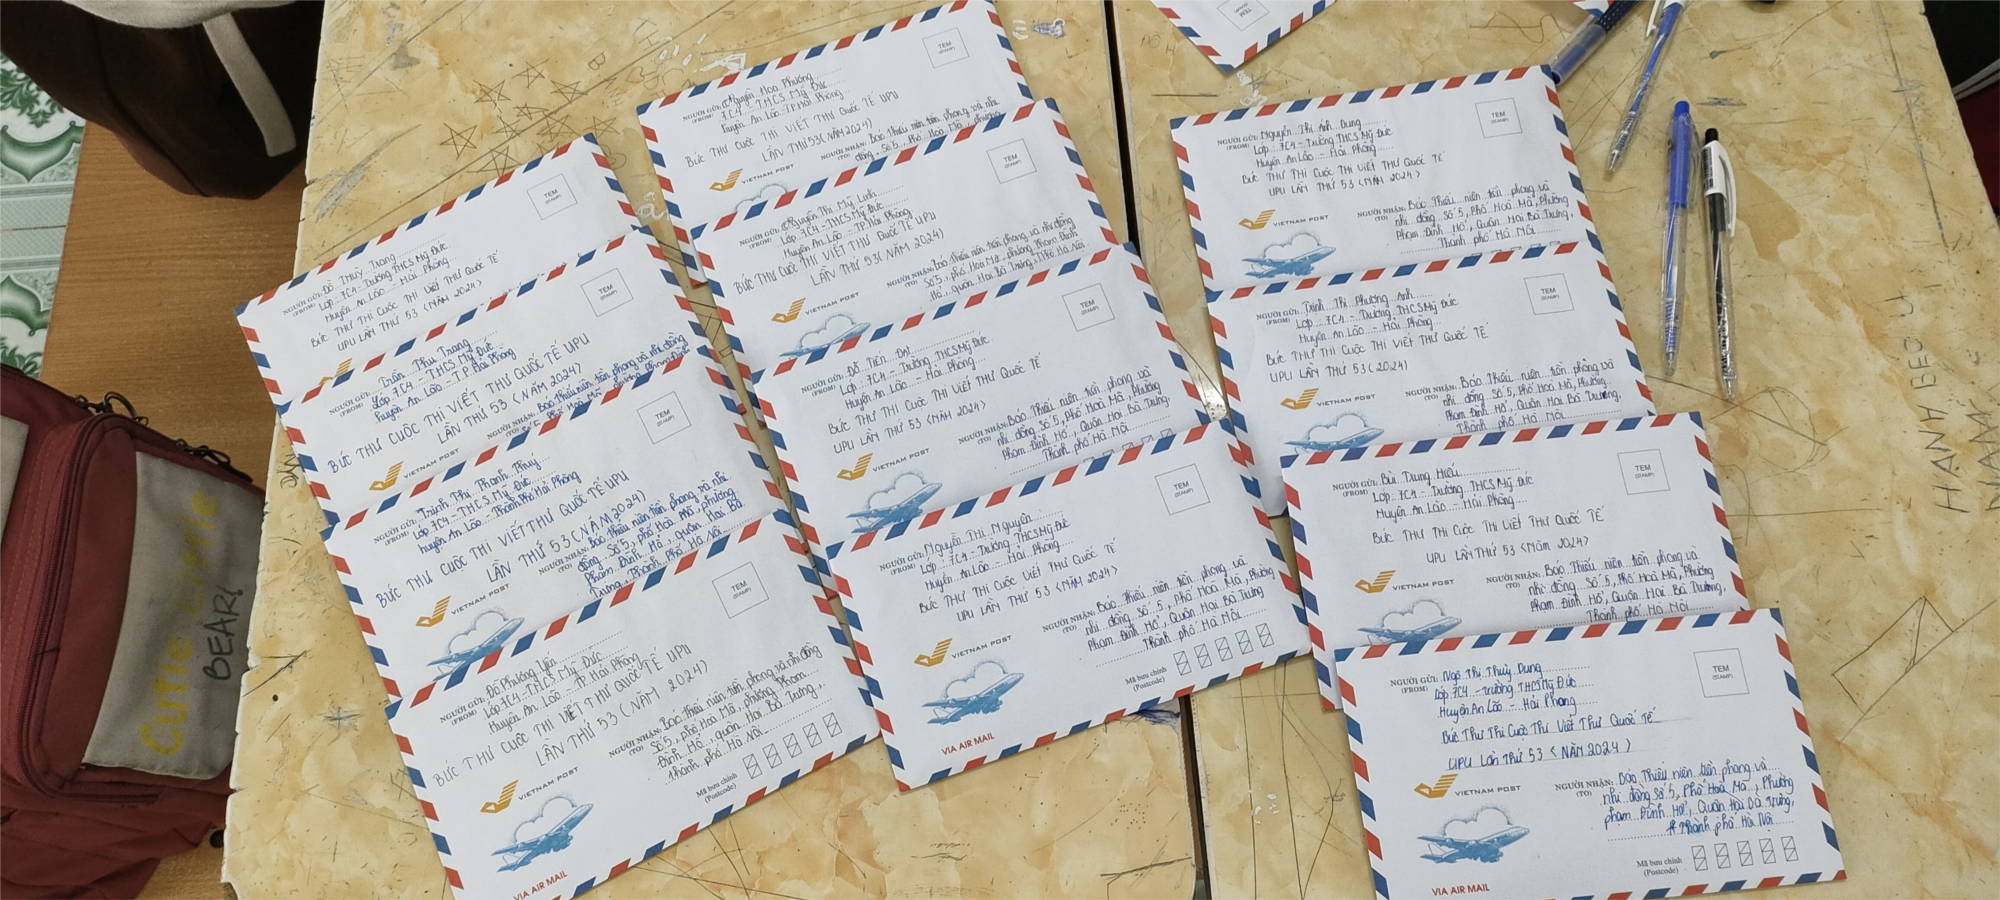 TEM
(STAMP)
NGƯỜI GỬI: Đỗ Thùy Trang
(FROM) Lớp 7C4 - Trường THCS Mỹ Đức
Huyện An Lão - Hải Phòng
BỨC THƯ THI CUỘC THI VIẾT THƯ QUỐC TẾ
UPU LẦN THỨ 53 <NĂM 2024>
TEM
(STAMP)
NGƯỜI GỬI: Trần Thu Trang
(FROM) Lớp 7C4 - THCS Mỹ Đức
Huyện An Lão - T.P Hải Phòng
BỨC THƯ CUỘC THI VIẾT THƯ QUỐC TẾ UPU
LẦN THỨ 53 <NĂM 2024)
NGƯỜI NHẬN: Báo Thiếu niên tiền phong và nhi đồng
(TO)
VIETNAM POST
TEM
(STAMP)
NGƯỜI GỬI: Trịnh Thị Thanh Thuý
(FROM) Lớp 7C4 - THCS Mỹ Đức
Huyện An Lão - Thành Phố Hải Phòng
BỨC THƯ CUỘC THI VIẾT THƯ QUỐC TẾ UPU
LẦN THỨ 53 (NĂM 2024)
VIETNAM POST
NGƯỜI NHẬN: Báo Thiếu niên tiền phong và nhi
(TO) đồng Số 5, phố Hoà Mã, phường
Phạm Đình Hổ, quận Hai Bà
Trưng, Thành Phố Hà Nội
TEM
(STAMP)
NGƯỜI GỬI: Đỗ Phương Yến
(FROM) Lớp 7C4 - THCS Mỹ Đức
Huyện An Lão - TP. Hải Phòng
BỨC THƯ CUỘC THI VIẾT THƯ QUỐC TẾ UPU
LẦN THỨ 53 (NĂM 2024)
VIETNAM POST
NGƯỜI NHẬN: Báo Thiếu niên tiền phong và nhi đồng
(TO) Số 5, phố Hoà Mã, phường Phạm
Đình Hổ, quận Hai Bà Trưng,
thành phố Hà Nội
Mã bưu chính
(Postcode)
VIA AIR MAIL
TEM
(STAMP)
NGƯỜI GỬI: Nguyễn Hoa Phượng
(FROM) 7C4 - THCS Mỹ Đức
Huyện An Lão - TP Hải Phòng
BỨC THƯ CUỘC THI VIẾT THƯ QUỐC TẾ UPU
LẦN THỨ 53 (NĂM 2024)
VIETNAM POST
NGƯỜI NHẬN: Báo Thiếu niên tiền phong và nhi
(TO) đồng, Số 5, phố Hoà Mã, phường
TEM
(STAMP)
NGƯỜI GỬI: Nguyễn Thị Mỹ Linh
(FROM) Lớp 7C4 - THCS Mỹ Đức
Huyện An Lão - TP. Hải Phòng
BỨC THƯ CUỘC THI VIẾT THƯ QUỐC TẾ UPU
LẦN THỨ 53 (NĂM 2024)
VIETNAM POST
NGƯỜI NHẬN: Báo Thiếu niên tiền phong và nhi đồng
(TO) Số 5, phố Hoà Mã, phường Phạm Đình
Hổ, Quận Hai Bà Trưng, TPhố Hà Nội
TEM
(STAMP)
NGƯỜI GỬI: Đỗ Tiến Đạt
(FROM) Lớp 7C4 - Trường THCS Mỹ Đức
Huyện An Lão - Hải Phòng
BỨC THƯ THI CUỘC THI VIẾT THƯ QUỐC TẾ
UPU LẦN THỨ 53 <NĂM 2024>
VIETNAM POST
NGƯỜI NHẬN: Báo Thiếu niên tiền phong và
(TO) nhi đồng Số 5, Phố Hoà Mã, Phường
Phạm Đình Hổ, Quận Hai Bà Trưng,
Thành phố Hà Nội
TEM
(STAMP)
NGƯỜI GỬI: Nguyễn Thị Nguyên
(FROM) Lớp 7C4 - Trường THCS Mỹ Đức
Huyện An Lão - Hải Phòng
BỨC THƯ THI CUỘC THI VIẾT THƯ QUỐC TẾ
UPU LẦN THỨ 53 <NĂM 2024>
VIETNAM POST
NGƯỜI NHẬN: Báo Thiếu niên tiền phong và
(TO) nhi đồng Số 5, Phố Hoà Mã, Phường
Phạm Đình Hổ, Quận Hai Bà Trưng,
Thành phố Hà Nội
Mã bưu chính
(Postcode)
VIA AIR MAIL
TEM
(STAMP)
TEM
(STAMP)
NGƯỜI GỬI: Nguyễn Thị Ánh Dung
(FROM) Lớp 7C4 - Trường THCS Mỹ Đức
Huyện An Lão - Hải Phòng
BỨC THƯ THI CUỘC THI VIẾT THƯ QUỐC TẾ
UPU LẦN THỨ 53 <NĂM 2024>
VIETNAM POST
NGƯỜI NHẬN: Báo Thiếu niên tiền phong và
(TO) nhi đồng Số 5, Phố Hoà Mã, Phường
Phạm Đình Hổ, Quận Hai Bà Trưng,
Thành phố Hà Nội
TEM
(STAMP)
NGƯỜI GỬI: Trịnh Thị Phương Anh
(FROM) Lớp 7C4 - Trường THCS Mỹ Đức
Huyện An Lão - Hải Phòng
BỨC THƯ THI CUỘC THI VIẾT THƯ QUỐC TẾ
UPU LẦN THỨ 53 (2024)
VIETNAM POST
NGƯỜI NHẬN: Báo Thiếu niên tiền phong và
(TO) nhi đồng Số 5, Phố Hoà Mã, Phường
Phạm Đình Hổ, Quận Hai Bà Trưng,
Thành phố Hà Nội
TEM
(STAMP)
NGƯỜI GỬI: Bùi Trung Hiếu
(FROM) Lớp 7C4 - Trường THCS Mỹ Đức
Huyện An Lão - Hải Phòng
BỨC THƯ THI CUỘC THI VIẾT THƯ QUỐC TẾ
UPU LẦN THỨ 53 <Năm 2024>
VIETNAM POST
NGƯỜI NHẬN: Báo Thiếu niên tiền phong và
(TO) nhi đồng Số 5, Phố Hoà Mã, Phường
Phạm Đình Hổ, Quận Hai Bà Trưng,
Thành phố Hà Nội
TEM
(STAMP)
NGƯỜI GỬI: Ngô Thị Thuỳ Dung
(FROM) Lớp 7C4 - trường THCS Mỹ Đức
Huyện An Lão - Hải Phòng
Bức Thư Thi Cuộc Thi Viết Thư Quốc Tế
UPU Lần Thứ 53 < NĂM 2024 >
VIETNAM POST
NGƯỜI NHẬN: Báo Thiếu niên tiền phong và
(TO) nhi đồng Số 5, Phố Hoà Mã, Phường
phạm Đình Hổ, Quận Hai Bà Trưng,
Thành phố Hà Nội
Mã bưu chính
(Postcode)
VIA AIR MAIL
Cutie
BEAR!
HANH BEO U